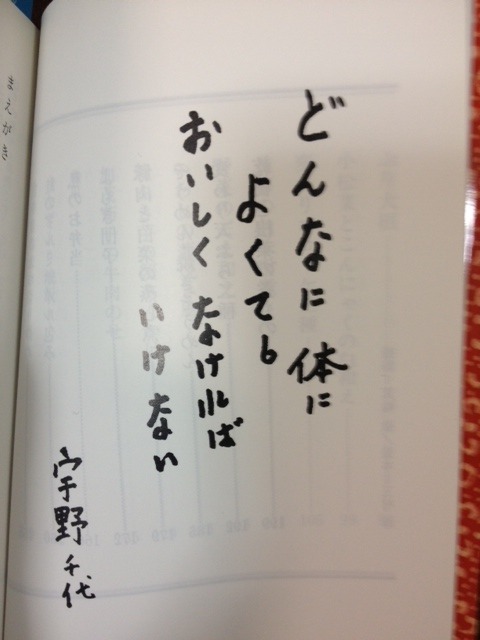 どんなに体に
よくても
おいしくなければ
いけない
宇野千代
まえがき